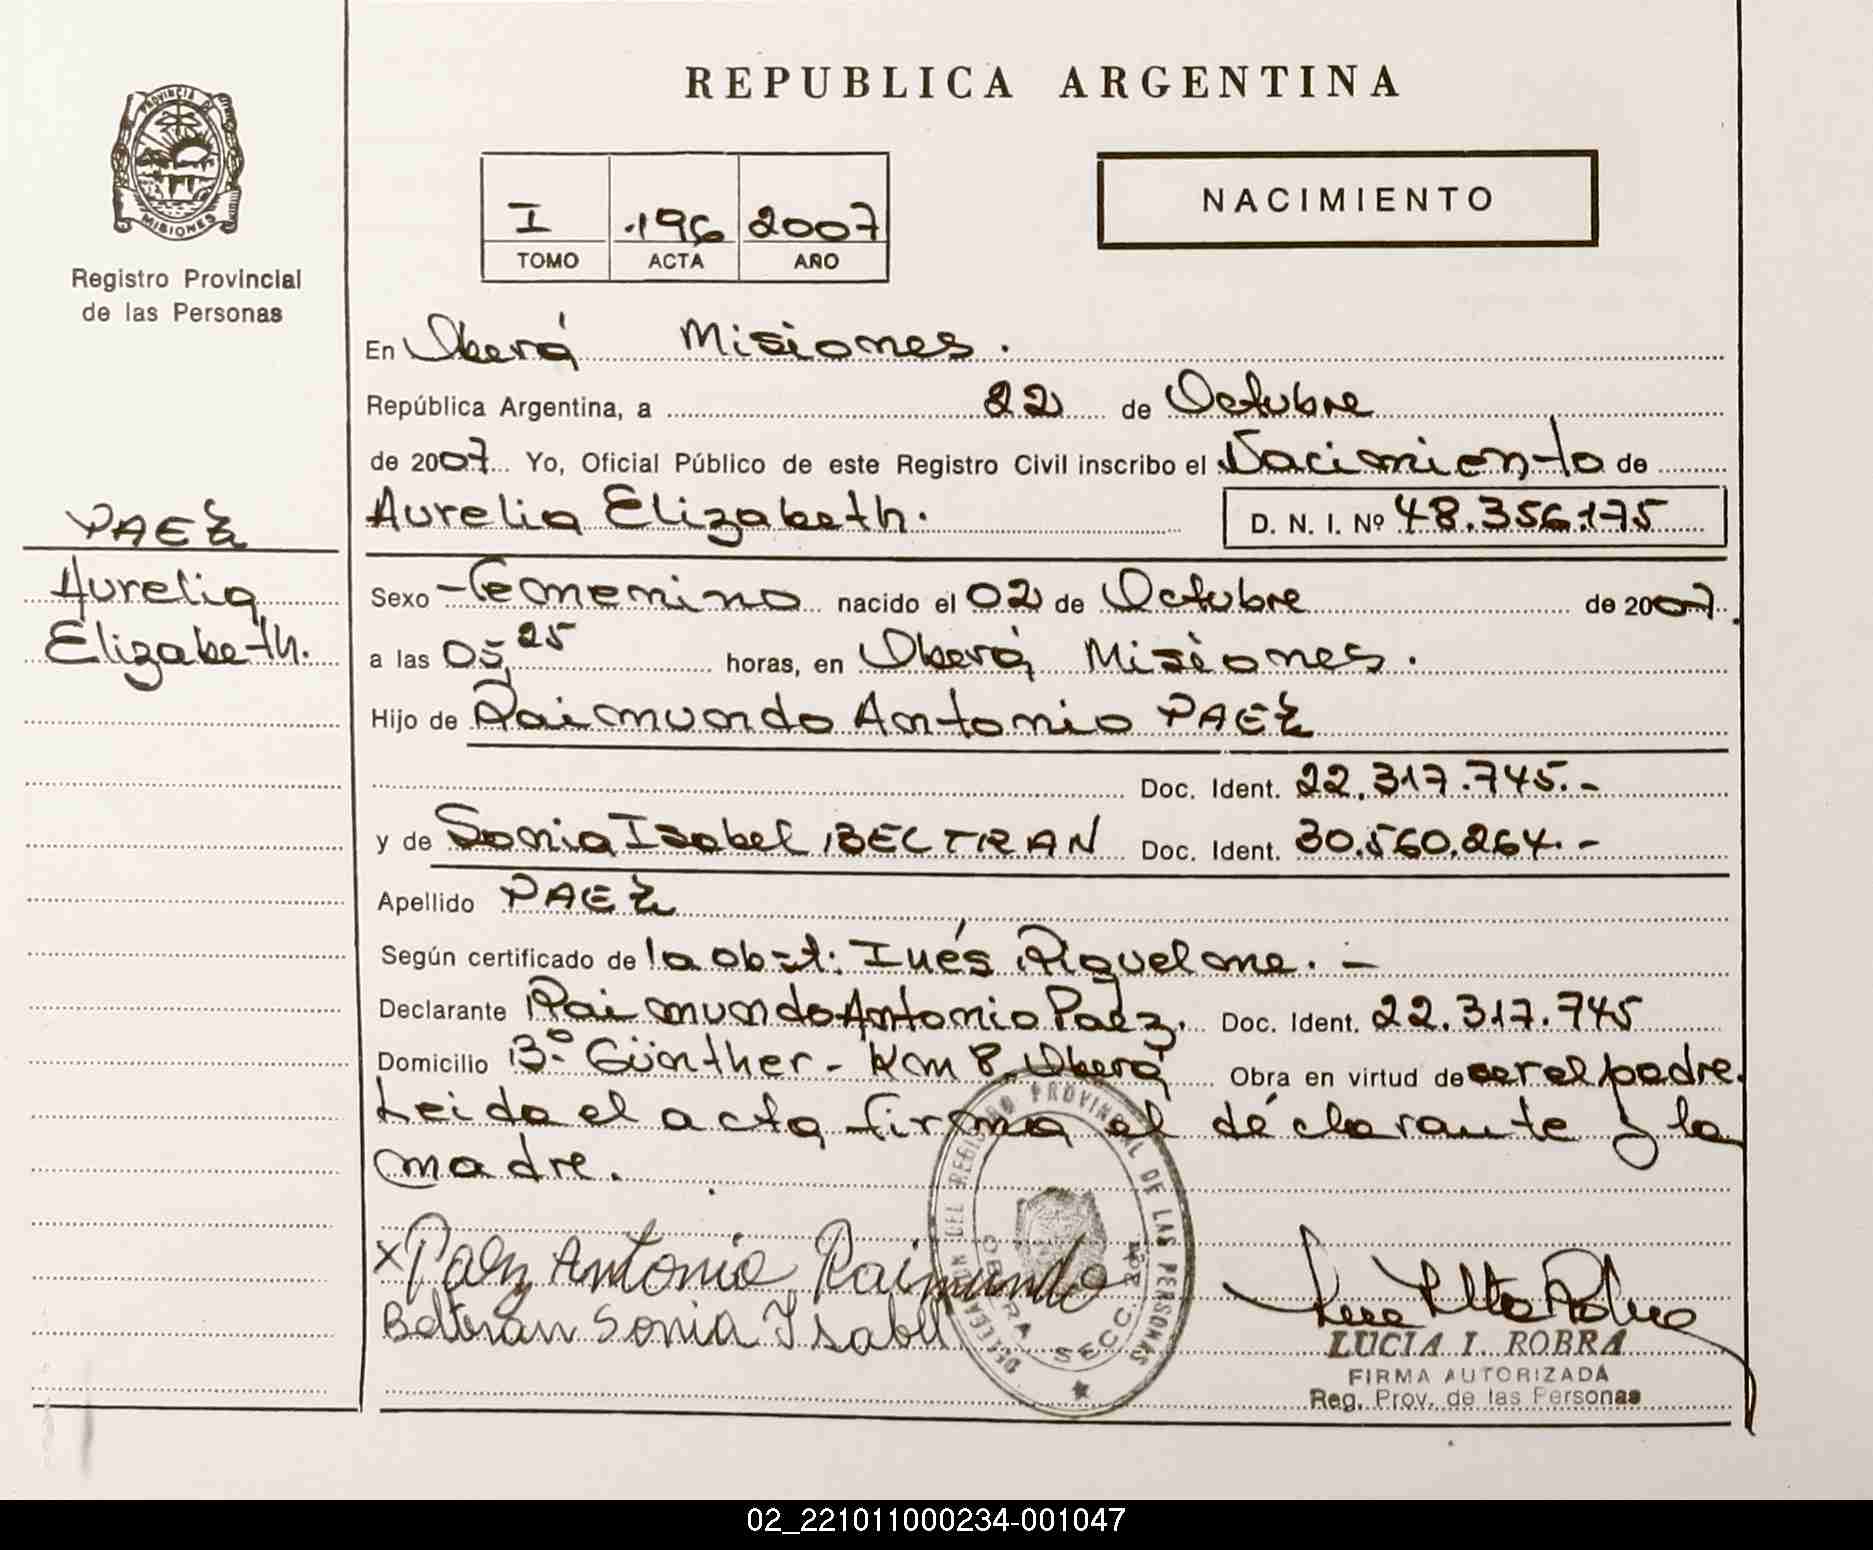 REPUBLICA ARGENTINA
PROVINCIA DE
MISIONES
Registro Provincial
de las Personas
I .196 2007
TOMO ACTA AÑO
NACIMIENTO
En Oberá Misiones.
República Argentina, a 22 de Octubre
de 2007 Yo, Oficial Público de este Registro Civil inscribo el Nacimiento de
Aurelia Elizabeth. D. N. I. Nº 48.356.175
PAEZ
Aurelia
Elizabeth.
Sexo Femenino nacido el 02 de Octubre de 2007.
a las 05,25 horas, en Oberá Misiones.
Hijo de Raimundo Antonio PAEZ
Doc. Ident. 22.317.745.-
y de Sonia Isabel BELTRAN Doc. Ident. 30.560.264.-
Apellido PAEZ
Según certificado de la obst: Inés Riquelme. -
Declarante Raimundo Antonio Paez. Doc. Ident. 22.317.745
Domicilio Bº Günther - Km 8 Oberá Obra en virtud de ser el padre.
Leida el acta firma el declarante y la
madre.
x Paez Antonio Raimundo
Beltran Sonia Isabel
DELEGACION DEL REGISTRO PROVINCIAL DE LAS PERSONAS
OBERA SECC.
LUCIA I. ROBRA
FIRMA AUTORIZADA
Reg. Prov. de las Personas
02_221011000234-001047